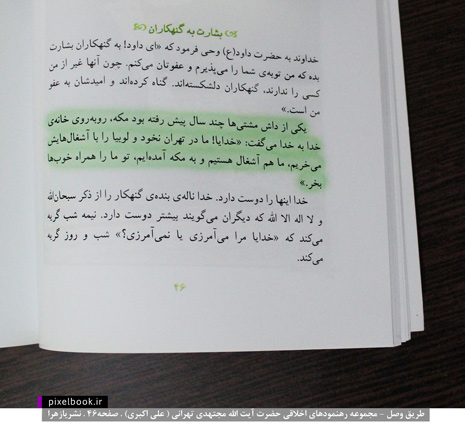 بشارت به گنهکاران
خداوند به حضرت داود(ع) وحی فرمود که «ای داود! به گنهکاران بشارت
بده که من توبه‌ی شما را می‌پذیرم و عفوتان می‌کنم. چون آنها غیر از من
کسی را ندارند، گنهکاران دلشکسته‌اند. گناه کرده‌اند و امیدشان به عفو
من است.»
یکی از داش مشتی‌ها چند سال پیش رفته بود مکه، روبه‌روی خانه‌ی
خدا به خدا می‌گفت: «خدایا! ما در تهران نخود و لوبیا را با آشغال‌هایش
می‌خریم، ما هم آشغال هستیم و به مکه آمده‌ایم، تو ما را همراه خوب‌ها
بخر.»
خدا اینها را دوست دارد. خدا ناله‌ی بنده‌ی گنهکار را از ذکر سبحان‌الله
و لا اله الا الله که دیگران می‌گویند بیشتر دوست دارد. نیمه شب گریه
می‌کند که «خدایا مرا می‌آمرزی یا نمی‌آمرزی؟» شب و روز گریه
می‌کند.
۴۶
pixelbook.ir
طریق وصل - مجموعه رهنمودهای اخلاقی حضرت آیت الله مجتهدی تهرانی ( علی اکبری) . صفحه۴۶ . نشریازهرا